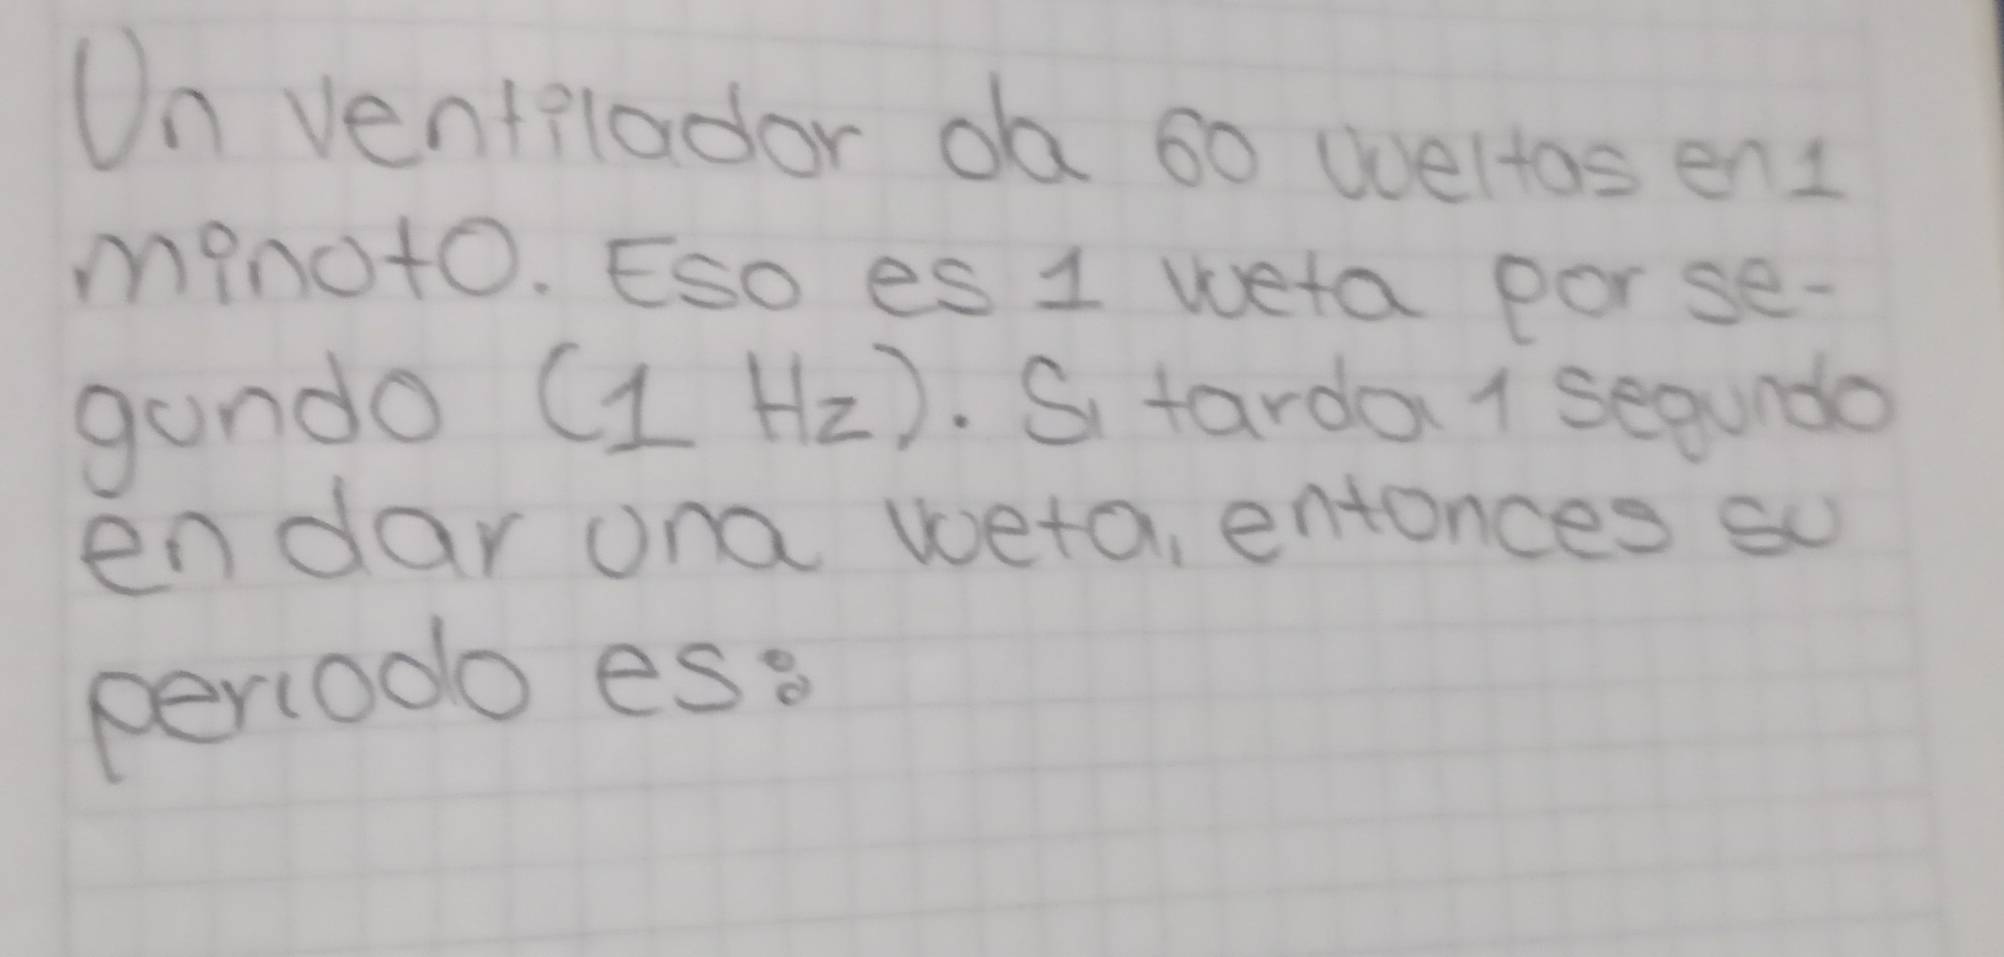 Un ventilador da 60 vueltas en 1
minuto. Eso es 1 vueta por se-
gundo (1 Hz). Si tarda 1 segundo
en dar una vueta, entonces su
periodo es: